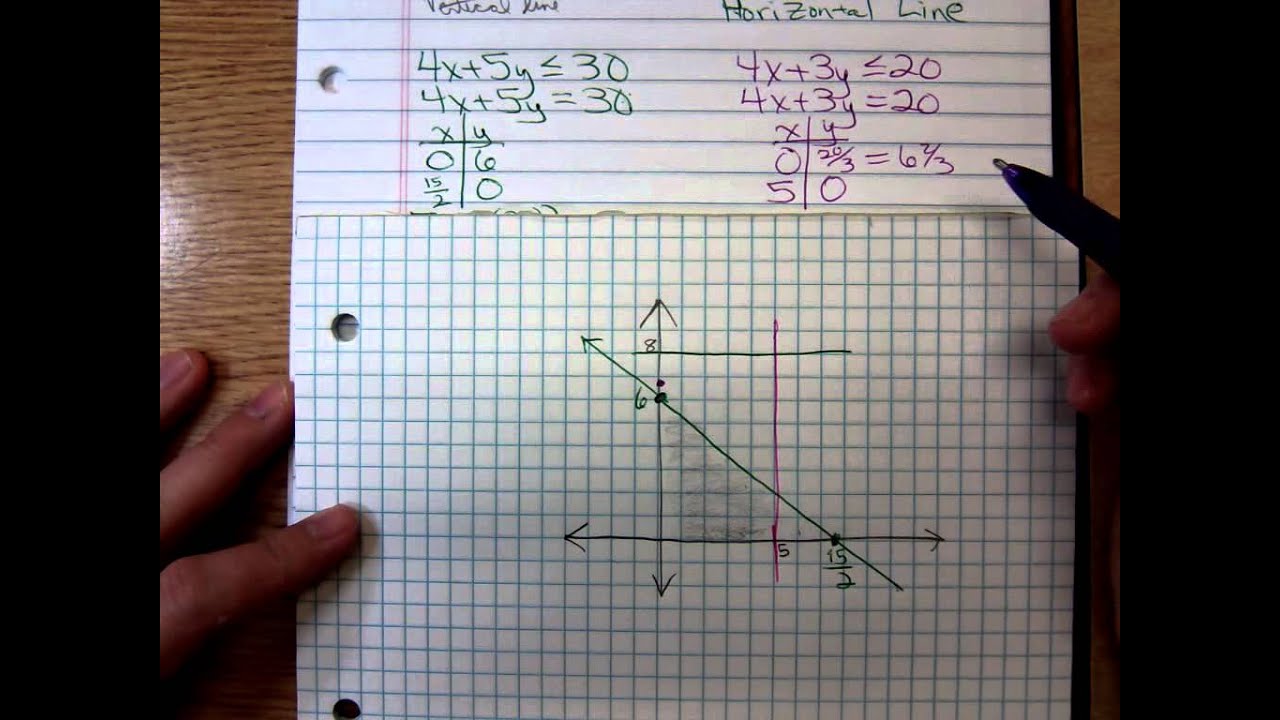 Vertical Line
Horizontal Line
4x+5y≤30
4x+5y=30
x y
0 6
15/2 0
4x+3y≤20
4x+3y=20
x y
0 20/3 = 6 2/3
5 0
8
6
5
15/2